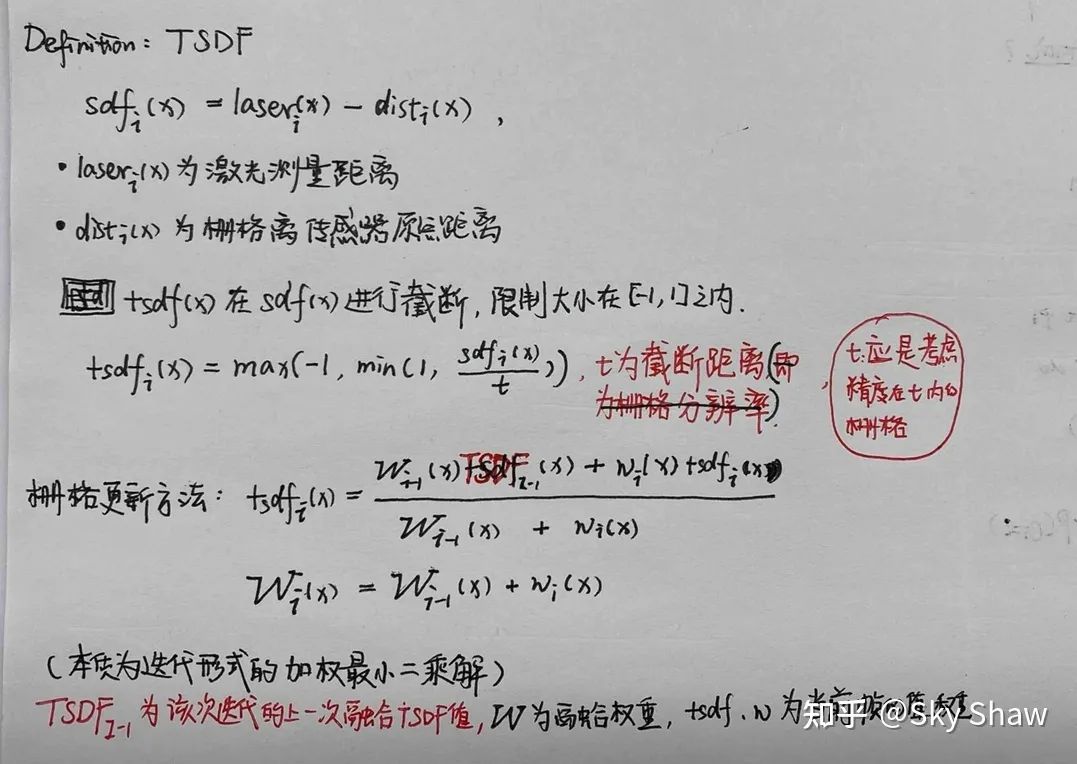 Definition: TSDF
sdf_i(x) = laser_i(x) - dist_i(x) ,
• laser_i(x) 为激光测量距离
• dist_i(x) 为栅格离传感器原点距离
tsdf(x) 在 sdf(x) 进行截断, 限制大小在 [-1, 1] 之内.
tsdf_i(x) = max(-1, min(1, sdf_i(x) / t)), t为截断距离(即
为栅格分辨率).
t应是考虑
精度在t内的
栅格
W_{i-1}(x) TSDF_{i-1}(x) + w_i(x) tsdf_i(x)
栅格更新方法: tsdf_i(x) =
W_{i-1}(x) + w_i(x)
W_i(x) = W_{i-1}(x) + w_i(x)
(本质为迭代形式的加权最小二乘解)
TSDF_{i-1} 为该次迭代的上一次融合TSDF值, W为融合权重, tsdf. w 为当前
知乎 @Sky Shaw